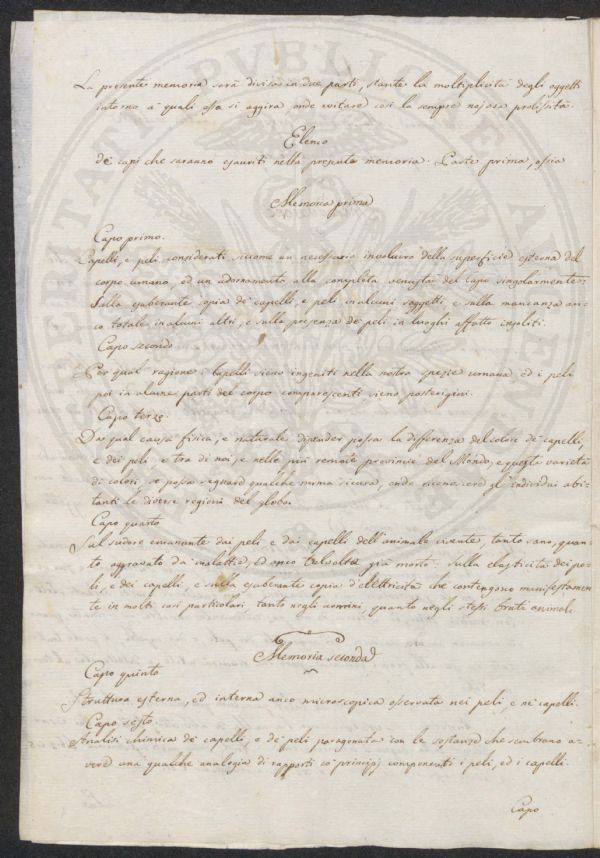 La presente memoria sarà divisa in due parti, stante la moltiplicità degli oggetti
intorno a' quali essa si aggira onde evitare così la sempre nojosa prolissità.
Elenco
de' capi che saranno esauriti nella presente memoria. Parte prima, ossia
Memoria prima
Capo primo.
Capelli, e peli considerati siccome un necessario involucro della superficie esterna del
corpo umano, ed un adornamento alla completa venustà del capo singolarmente:
Sulla esuberante copia de' capelli, e peli in alcuni soggetti, e sulla mancanza an-
co totale in alcuni altri, e sulla presenza de' peli in luoghi affatto insoliti.
Capo secondo
Per qual ragione i Capelli sieno ingeniti nella nostra spezie umana ed i peli
poi in alcune parti del corpo comparescenti sieno postergini.
Capo terzo
Da qual causa fisica, e naturale dipender possa la differenza del colore de' capelli,
e dei peli e tra di noi, e nelle più remote provincie del Mondo, e questa varietà
di colori, se possa seguard qualche norma sicura, onde riconoscere gl' individui abi-
tanti le diverse regioni del globo.
Capo quarto
Sul sudore emanante dai peli e dai capelli dell' animale vivente, tanto sano, quan-
to aggravato da malattia, ed anco talvolta già morto: sulla elasticità dei pe-
li, e dei capelli, e sulla esuberante copia d' elettricità che contengono manifestamen-
te in molti casi particolari tanto negli uomini, quanto negli stessi bruti animali.
Memoria seconda
Capo quinto
Struttura esterna, ed interna anco microscopica osservata nei peli, e ne' capelli.
Capo sesto
Analisi chimica de' capelli, e de' peli paragonata con le sostanze che sembrano a-
vere una qualche analogia di rapporti co' principj componenti i peli, ed i capelli.
Capo
PUBLIC